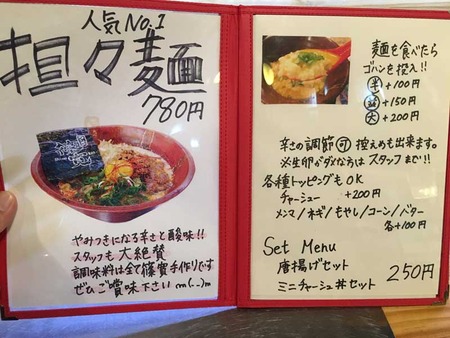 人気No.1
担々麺
780円
やみつきになる辛さと酸味!!
スタッフも大絶賛
調味料は全て篠寳手作りです
ぜひご賞味下さい m(_ _)m
麺を食べたら
ゴハンを投入!!
半 +100円
並 +150円
大 +200円
辛さの調節可 控えめも出来ます。
※生卵がダメな方はスタッフまで!!
各種トッピングもOK
チャーシュー +200円
メンマ/ネギ/もやし/コーン/バター
各+100円
Set Menu
唐揚げセット
ミニチャーシュ丼セット
250円